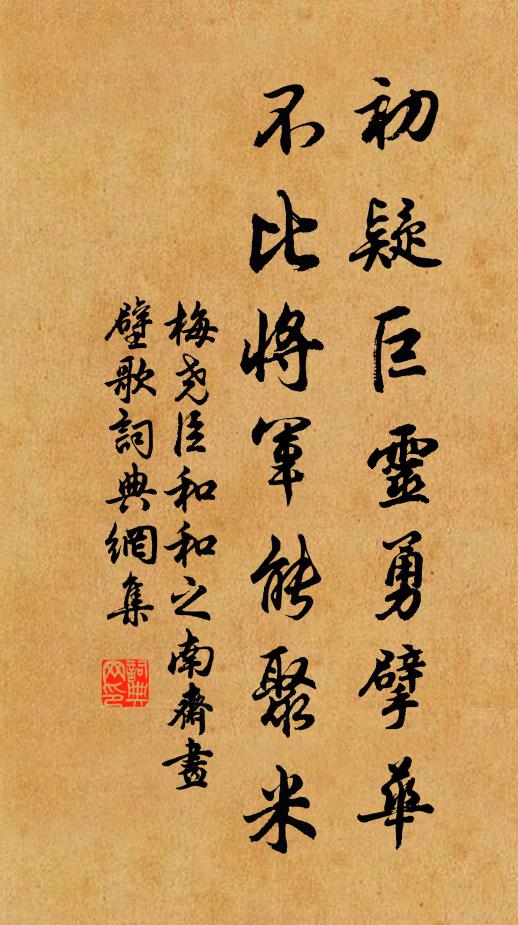 初疑巨靈勇擘華
不比將軍能聚米
梅堯臣和和之南齋畫
壁歌詞典網集
詞典
网印